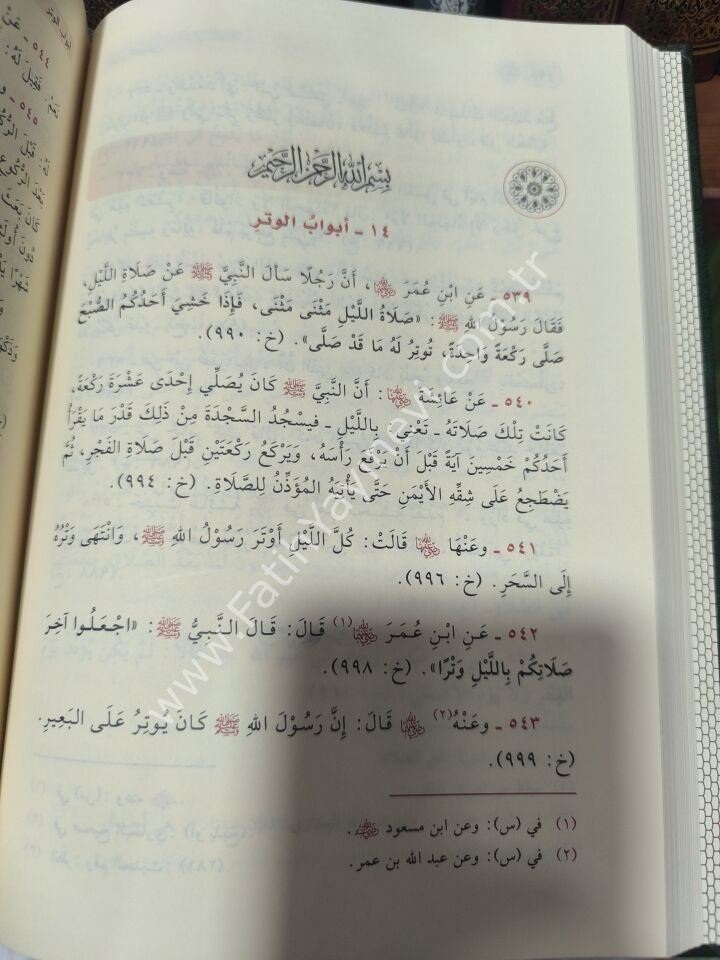 بِسْمِ اللهِ الرَّحْمٰنِ الرَّحِيْمِ
١٤ ـ أبوابُ الوتر
٥٣٩ ـ عَنِ ابْنِ عُمَرَ ﵄، أَنَّ رَجُلًا سَأَلَ النَّبِيَّ ﷺ عَنْ صَلَاةِ اللَّيْلِ،
فَقَالَ رَسُوْلُ اللهِ ﷺ: «صَلَاةُ اللَّيْلِ مَثْنَى مَثْنَى، فَإِذَا خَشِيَ أَحَدُكُمُ الصُّبْحَ
صَلَّى رَكْعَةً وَاحِدَةً، تُوتِرُ لَهُ مَا قَدْ صَلَّى». (خ: ٩٩٠).
٥٤٠ ـ عَنْ عَائِشَةَ ﵂: أَنَّ النَّبِيَّ ﷺ كَانَ يُصَلِّي إِحْدَى عَشْرَةَ رَكْعَةً،
كَانَتْ تِلْكَ صَلَاتَهُ ـ تَعْنِي بِاللَّيْلِ ـ فَيسْجُدُ السَّجْدَةَ مِنْ ذَلِكَ قَدْرَ مَا يَقْرَأُ
أَحَدُكُمْ خَمْسِينَ آيَةً قَبْلَ أَنْ يَرْفَعَ رَأْسَهُ، وَيَرْكَعُ رَكْعَتَيْنِ قَبْلَ صَلَاةِ الفَجْرِ، ثُمَّ
يَضْطَجِعُ عَلَى شِقِّهِ الأَيْمَنِ حَتَّى يَأْتِيَهُ المُؤَذِّنُ لِلصَّلَاةِ. (خ: ٩٩٤).
٥٤١ ـ وعَنْهَا ﵂ قَالَتْ: كُلَّ اللَّيْلِ أَوْتَرَ رَسُوْلُ اللهِ ﷺ، وَانْتَهَى وَتْرُهُ
إِلَى السَّحَرِ. (خ: ٩٩٦).
٥٤٢ ـ عَنِ ابْنِ عُمَرَ ﵄(١) قَالَ: قَالَ النَّبِيُّ ﷺ: «اجْعَلُوا آخِرَ
صَلَاتِكُمْ بِاللَّيْلِ وَتْرًا». (خ: ٩٩٨).
٥٤٣ ـ وعَنْهُ(٢) ﵁ قَالَ: إِنَّ رَسُوْلَ اللهِ ﷺ كَانَ يُوْتِرُ عَلَى البَعِيرِ.
(خ: ٩٩٩).
(١) في (س): وعن ابن مسعود ﵁.
(٢) في (س): وعن عبد الله بن عمر.
www.FatihYayinevi.com.tr